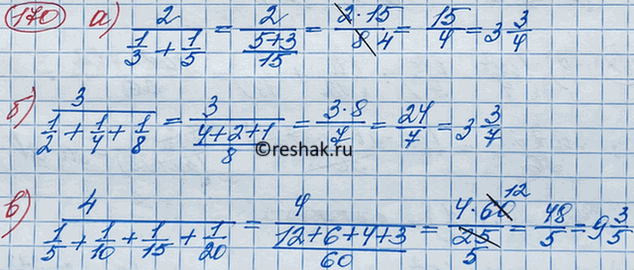 170 а) 2/(1/3 + 1/5) = 2/((5+3)/15) = (2·15)/8 4 = 15/4 = 3 3/4
б) 3/(1/2 + 1/4 + 1/8) = 3/((4+2+1)/8) = (3·8)/7 = 24/7 = 3 3/7
©reshak.ru
в) 4/(1/5 + 1/10 + 1/15 + 1/20) = 4/((12+6+4+3)/60) = (4·60 12)/(25 5) = 48/5 = 9 3/5